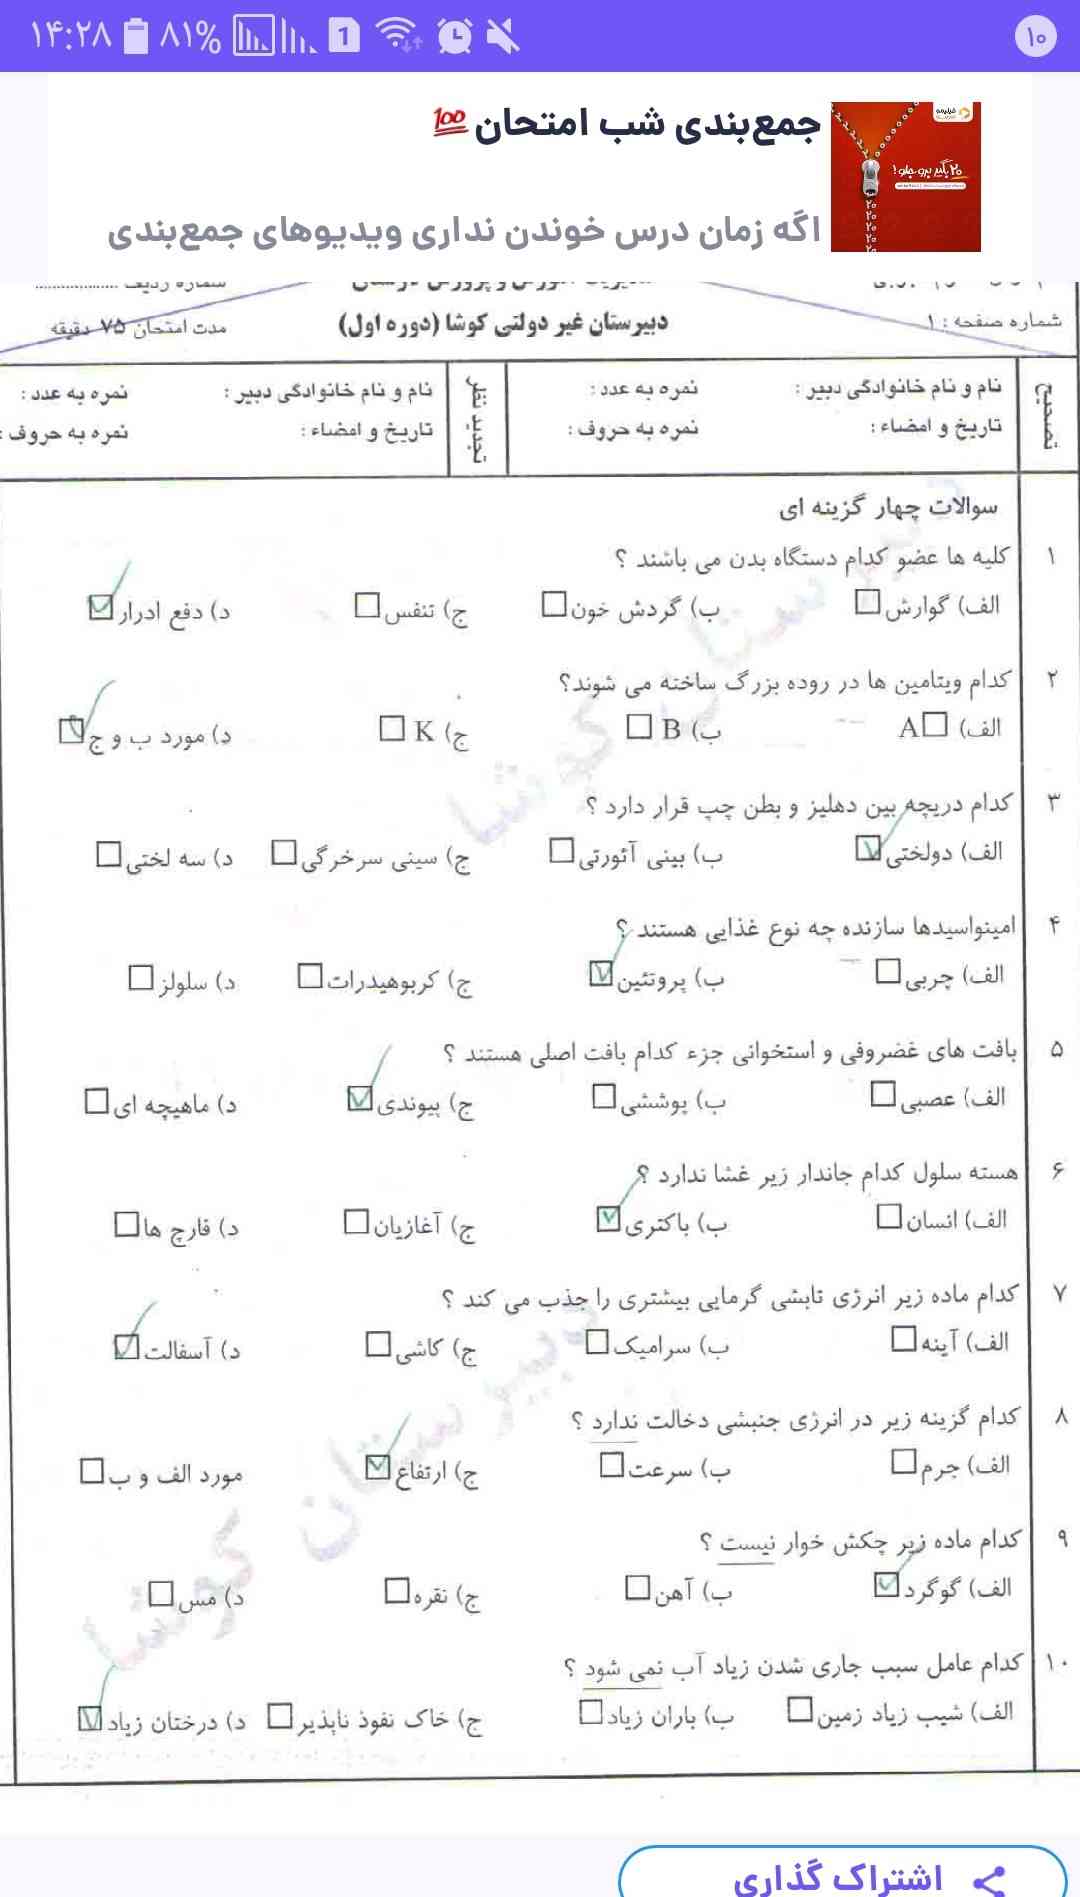 ۱۴:۲۸ ۸۱% 1 ۱۰
جمع‌بندی شب امتحان 💯
اگه زمان درس خوندن نداری ویدیوهای جمع‌بندی
۲۰ بگیر برو جلو!
شماره ردیف
شماره صفحه : ۱
دبیرستان غیر دولتی کوشا (دوره اول)
مدت امتحان ۷۵ دقیقه
تصحیح
نام و نام خانوادگی دبیر :
نمره به عدد :
تاریخ و امضاء :
نمره به حروف :
تجدید نظر
نام و نام خانوادگی دبیر :
نمره به عدد :
تاریخ و امضاء :
نمره به حروف :
سوالات چهار گزینه ای
۱ کلیه ها عضو کدام دستگاه بدن می باشند ؟
الف) گوارش ب) گردش خون ج) تنفس د) دفع ادرار
۲ کدام ویتامین ها در روده بزرگ ساخته می شوند؟
الف) A ب) B ج) K د) مورد ب و ج
۳ کدام دریچه بین دهلیز و بطن چپ قرار دارد ؟
الف) دولختی ب) بینی آئورتی ج) سینی سرخرگی د) سه لختی
۴ امینواسیدها سازنده چه نوع غذایی هستند ؟
الف) چربی ب) پروتئین ج) کربوهیدرات د) سلولز
۵ بافت های غضروفی و استخوانی جزء کدام بافت اصلی هستند ؟
الف) عصبی ب) پوششی ج) پیوندی د) ماهیچه ای
۶ هسته سلول کدام جاندار زیر غشا ندارد ؟
الف) انسان ب) باکتری ج) آغازیان د) قارچ ها
۷ کدام ماده زیر انرژی تابشی گرمایی بیشتری را جذب می کند ؟
الف) آینه ب) سرامیک ج) کاشی د) آسفالت
۸ کدام گزینه زیر در انرژی جنبشی دخالت ندارد ؟
الف) جرم ب) سرعت ج) ارتفاع مورد الف و ب
۹ کدام ماده زیر چکش خوار نیست ؟
الف) گوگرد ب) آهن ج) نقره د) مس
۱۰ کدام عامل سبب جاری شدن زیاد آب نمی شود ؟
الف) شیب زیاد زمین ب) باران زیاد ج) خاک نفوذ ناپذیر د) درختان زیاد
دبیرستان کوشا
دبیرستان کوشا
اشتراک گذاری